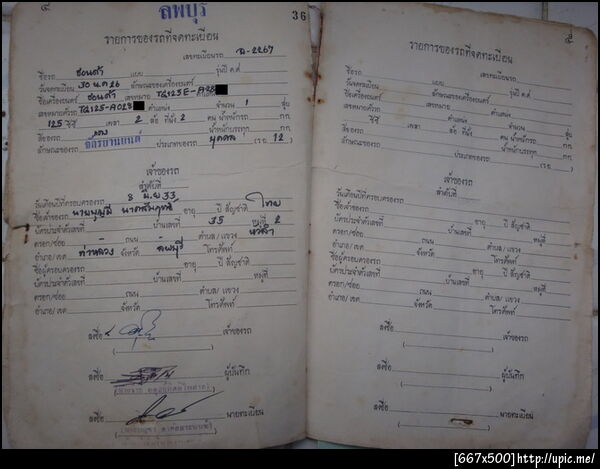 ๔
ลพบุรี
36
รายการของรถที่จดทะเบียน
เลขทะเบียนรถ ล-2267
ชื่อรถ ฮอนด้า แบบ รุ่นปี ค.ศ.
วันจดทะเบียน 30 ลักษณะของเครื่องยนตร์
ชื่อเครื่องยนตร์ ฮอนด้า เลขหมาย TQ125E-A28
เลขหมายตัวรถ TQ125-A028 ตำแหน่ง จำนวน 1 สูบ
125 ซีซี เพลา 2 ล้อ ที่นั่ง 2 คน น้ำหนักรถ กก.
สีของรถ แดง น้ำหนักบรรทุก กก.
ลักษณะของรถ จักรยานยนต์ ประเภทของรถ บุคคล (รย. 12)
เจ้าของรถ
ลำดับที่
วันเดือนปีที่ครอบครองรถ 8 มิ.ย 33
ชื่อเจ้าของรถ อายุ ปี สัญชาติ ไทย
บัตรประจำตัวเลขที่ บ้านเลขที่ 35 หมู่ที่ 2
ตรอก/ซอย ถนน ตำบล/แขวง หัวลำ
อำเภอ/เขต ท่าหลวง จังหวัด ลพบุรี โทรศัพท์
ชื่อผู้ครอบครองรถ อายุ ปี สัญชาติ
บัตรประจำตัวเลขที่ บ้านเลขที่ หมู่ที่
ตรอก/ซอย ถนน ตำบล/แขวง
อำเภอ/เขต จังหวัด โทรศัพท์
ลงชื่อ เจ้าของรถ
ลงชื่อ ผู้บันทึก
ลงชื่อ นายทะเบียน
๕
รายการของรถที่จดทะเบียน
เลขทะเบียนรถ
ชื่อรถ แบบ รุ่นปี ค.ศ.
วันจดทะเบียน ลักษณะของเครื่องยนตร์
ชื่อเครื่องยนตร์ เลขหมาย
เลขหมายตัวรถ ตำแหน่ง จำนวน สูบ
ซีซี เพลา ล้อ ที่นั่ง คน น้ำหนักรถ กก.
สีของรถ น้ำหนักบรรทุก กก.
ลักษณะของรถ ประเภทของรถ (รย. )
เจ้าของรถ
ลำดับที่
วันเดือนปีที่ครอบครองรถ
ชื่อเจ้าของรถ อายุ ปี สัญชาติ
บัตรประจำตัวเลขที่ บ้านเลขที่ หมู่ที่
ตรอก/ซอย ถนน ตำบล/แขวง
อำเภอ/เขต จังหวัด โทรศัพท์
ชื่อผู้ครอบครองรถ อายุ ปี สัญชาติ
บัตรประจำตัวเลขที่ บ้านเลขที่ หมู่ที่
ตรอก/ซอย ถนน ตำบล/แขวง
อำเภอ/เขต จังหวัด โทรศัพท์
ลงชื่อ เจ้าของรถ
ลงชื่อ ผู้บันทึก
ลงชื่อ นายทะเบียน
[667x500]http://upic.me/